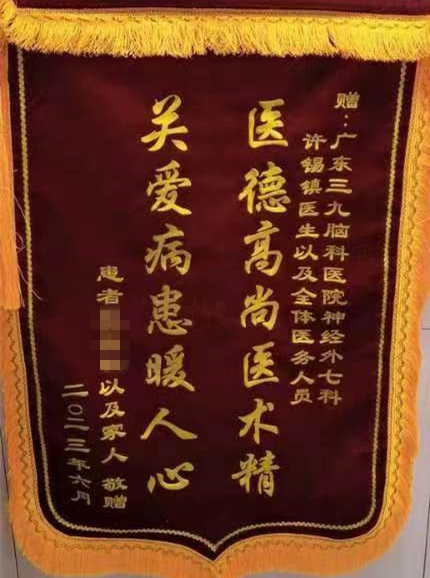 赠：广东三九脑科医院神经外七科
许锡镇医生以及全体医务人员
医德高尚医术精
关爱病患暖人心
患者 以及家人 敬赠
二〇二三年六月